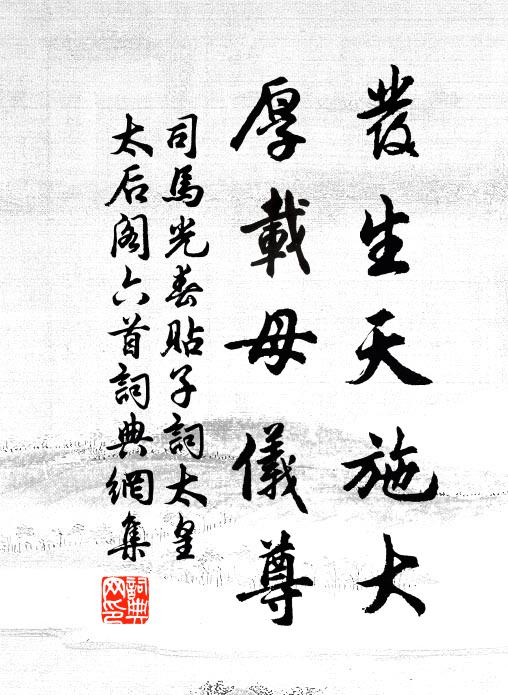 發生天施大
厚載母儀尊
司馬光春貼子詞太皇
太后閣六首詞典網集
詞典網印